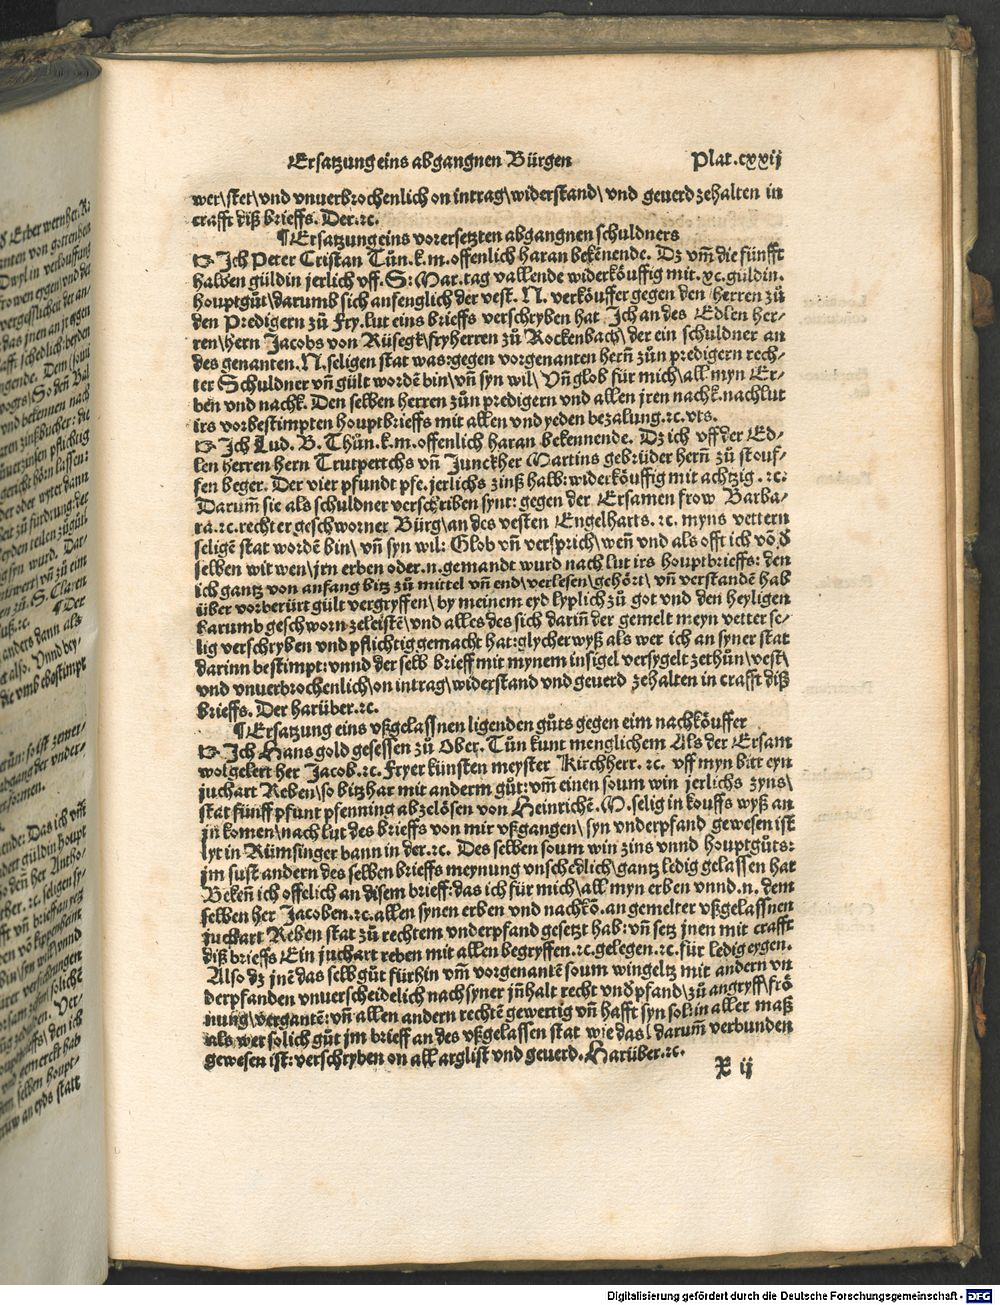 Ersatzung eins abgangnen Bürgen Plat.cxxij
wer\stet\vnd vnuerbrochenlich on intrag\widerstand\ vnd geuerd zehalten in
crafft diß brieffs. Der.ꝛc.
¶Ersatzung eins vorersetzten abgangnen schuldners
Ich Peter Cristan Tůn.k.m.offenlich haran bekēnende. Dz vm̄ die fünfft
halben güldin jerlich vff. S. Mar.tag vallende widerköuffig mit.xc.güldin.
houptgůt\darumb sich anfenglich der vest. N. verköuffer gegen den herren zů
den Predigern zů Fry.lut eins brieffs verschryben hat Ich an des Edlen her⸗
ren\hern Jacobs von Rüsegk\fryherren zů Rockenbach\der ein schuldner an
des genanten.N.seligen stat was:gegen vorgenanten hern̄ zůn predigern rech⸗
ter Schuldner vn̄ gült wordē bin\vn̄ syn wil\ Vn̄ glob für mich\all myn Er⸗
ben vnd nachk. Den selben herren zůn predigern vnd allen jren nachk.nachlut
irs vorbestimpten houptbrieffs mit allen vnd yeden bezalung.ꝛc.vts.
Ich Lud. B. Thůn.k.m.offenlich haran bekennende. Dz ich vff der Ed⸗
len herren hern Trutpertchs vn̄ Junckher Martins gebrüder hern̄ zů stouf⸗
fen beger. Der vier pfundt pfe.jerlichs zinß halb:widerköuffig mit achtzig .ꝛc:
Darum̄ sie als schuldner verschriben synt: gegen der Ersamen frow Barba⸗
ra.ꝛc.rechter geschworner Bürg\an des vesten Engelharts. ꝛc. myns vettern
seligē stat wordē bin\ vn̄ syn wil: Glob vn̄ versprich\wen̄ vnd als offt ich vō d̄
selben witwen\jrn erben oder.n.gemandt wurd nach lut irs houptbrieffs: den
ich gantz von anfang bitz zů mittel vn̄ end\verlesen\gehört\ vn̄ verstandē hab
über vorberürt gült vergryffen\by meinem eyd lyplich zů got vnd den heyligen
harumb geschworn zeleistē\vnd alles des sich darin̄ der gemelt meyn vetter se⸗
lig verschryben vnd pflichtig gemacht hat:glycher wyß als wer ich an syner stat
darinn bestimpt:vnnd der selb brieff mit mynem insigel versygelt zethůn\vest\
vnd vnuerbrochenlich\on intrag\widerstand vnd geuerd zehalten in crafft diß
brieffs. Der harüber.ꝛc.
¶Ersatzung eins vßgelassnen ligenden gůts gegen eim nachköuffer
Ich Hans gold gesessen zů Ober. Tůn kunt menglichem Als der Ersam
wolgelert her Jacob.ꝛc. Fryer künsten meyster Kirchherr. ꝛc. vff myn bitt eyn
juchart Reben\so bitz har mit anderm gůt:vm̄ einen soum win jerlichs zyns\
stat fünff pfunt pfenning abzelösen von Heinrichē.M.selig in kouffs wyß an
jn komen\nach lut des brieffs von mir vßgangen\ syn vnderpfand gewesen ist
lyt in Rümsinger bann in der.ꝛc. Des selben soum win zins vnnd houptgůts:
jm sust andern des selben brieffs meynung vnschedlich\gantz ledig gelassen hat
Beken̄ ich offelich an disem brieff:das ich für mich\all myn erben vnnd.n. dem
selben her Jacoben.ꝛc.allen synen erben vnd nachkō.an gemelter vßgelassnen
juchart Reben stat zů rechtem vnderpfand gesetzt hab:vn̄ setz jnen mit crafft
diß brieffs Ein juchart reben mit allen begryffen.ꝛc.gelegen.ꝛc.für ledig eygen.
Also dz jnē das selb gůt fürhin vm̄ vorgenantē soum wingeltz mit andern vn
derpfanden vnuerscheidelich nach syner jn̄halt recht vnd pfand\zů angryff\frö
nung\vergantē:vn̄ allen andern rechtē gewertig vn̄ hafft syn sol:in aller maß
als wer solich gůt jm brieff an des vßgelassen stat wie das\darum̄ verbunden
gewesen ist:verschryben on all arglist vnd geuerd.Harüber.ꝛc.
X ij
Digitalisierung gefördert durch die Deutsche Forschungsgemeinschaft - DFG